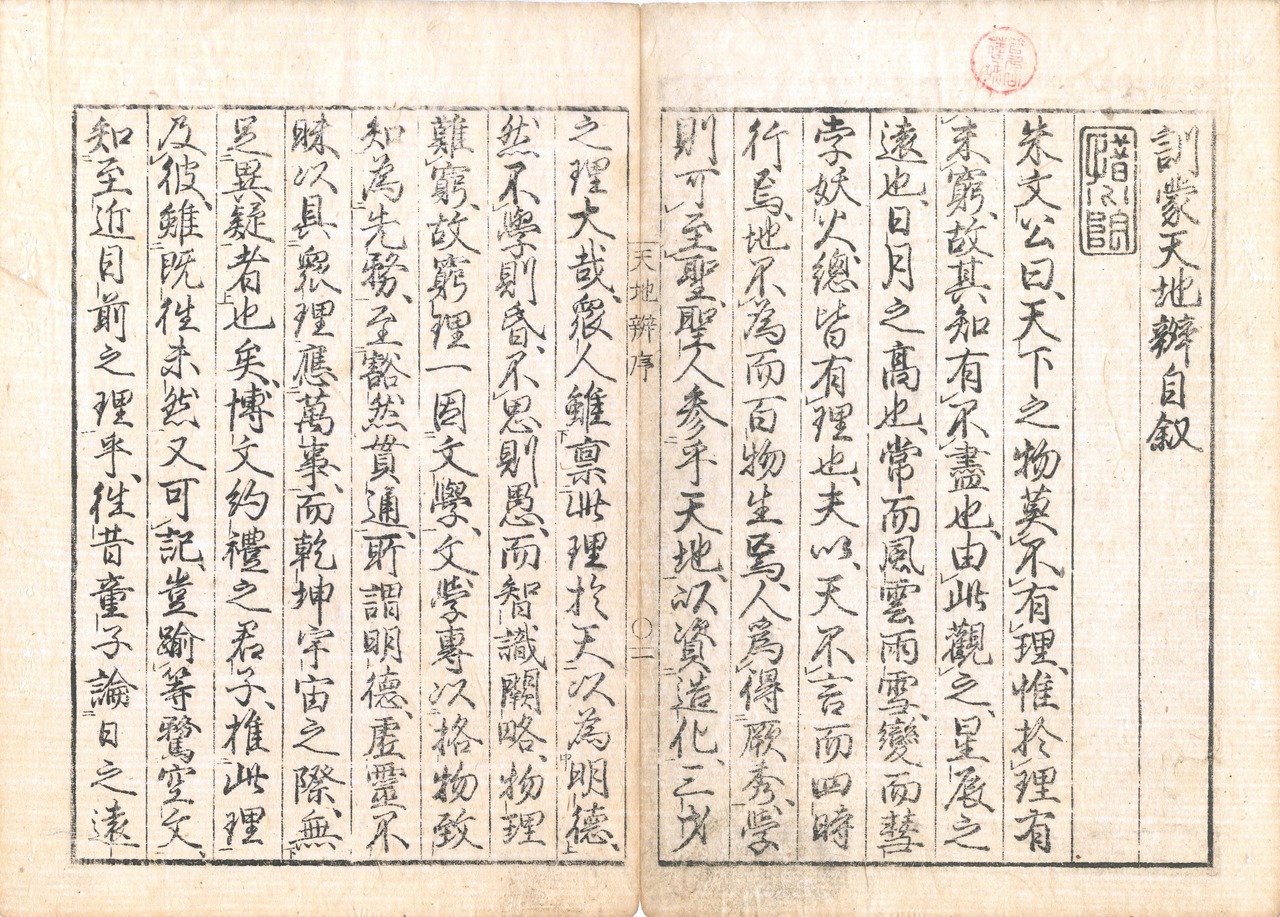 訓蒙天地辨自叙
朱文公曰天下之物莫不有理惟於理有
未窮故其知有不盡也由此觀之星辰之
遠也日月之高也常而風雲雨雪變而彗
孛妖火總皆有理也夫以天不言而四時
行焉地不為而百物生焉人為得厥秀學
則可至聖聖人參乎天地以資造化三才
天地辨序
〇二
之理大哉衆人雖禀此理於天以為明德
然不學則昏不思則愚而智識闕略物理
難窮故窮理一因文學文學專以格物致
知為先務至豁然貫通所謂明德虛靈不
昧以具衆理應萬事而乾坤宇宙之際無
足異疑者也矣博文約禮之君子推此理
及彼雖既徃未然又可記豈踰等騖空文
知至近目前之理乎徃昔童子論日之遠